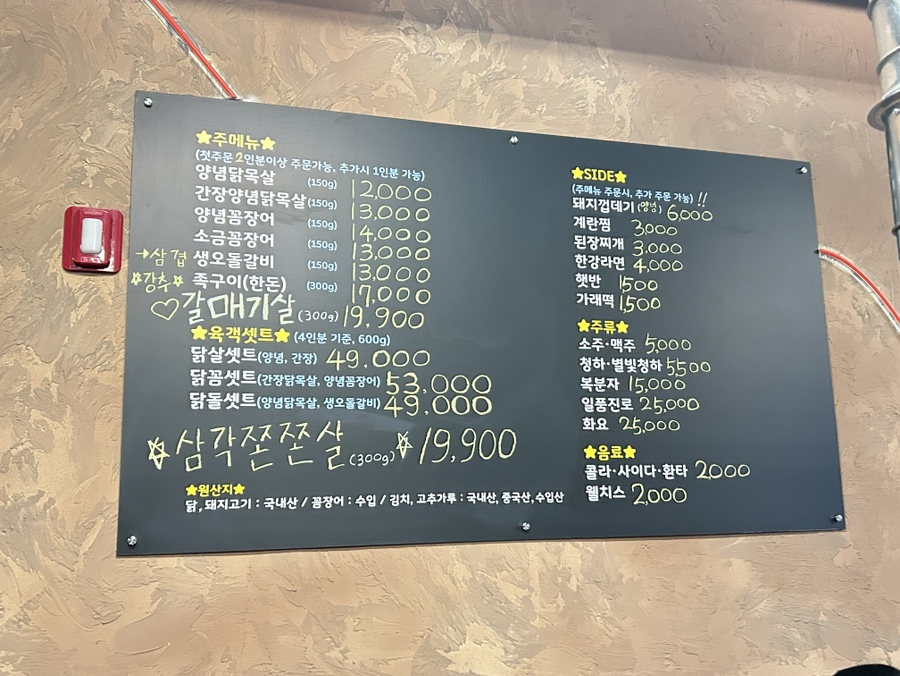 ★주메뉴★
(첫주문 2인분이상 주문가능, 추가시 1인분 가능)
양념닭목살 (150g) 12,000
간장양념닭목살 (150g) 13,000
양념꼼장어 (150g) 14,000
소금꼼장어 (150g) 13,000
→삼겹 생오돌갈비 (150g) 13,000
☆강추☆ 족구이(한돈) (300g) 17,000
♡갈매기살 (300g) 19,900
★육객셋트★ (4인분 기준, 600g)
닭살셋트(양념, 간장) 49,000
닭꼼셋트(간장닭목살, 양념꼼장어) 53,000
닭돌셋트(양념닭목살, 생오돌갈비) 49,000
☆삼각쫀쫀살 (300g) ☆ 19,900
★원산지★
닭, 돼지고기 : 국내산 / 꼼장어 : 수입 / 김치, 고추가루 : 국내산, 중국산,수입산
★SIDE★
(주메뉴 주문시, 추가 주문 가능) !!
돼지껍데기 (양념) 6,000
계란찜 3,000
된장찌개 3,000
한강라면 4,000
햇반 1,500
가래떡 1,500
★주류★
소주·맥주 5,000
청하·별빛청하 5,500
복분자 15,000
일품진로 25,000
화요 25,000
★음료★
콜라·사이다·환타 2,000
웰치스 2,000